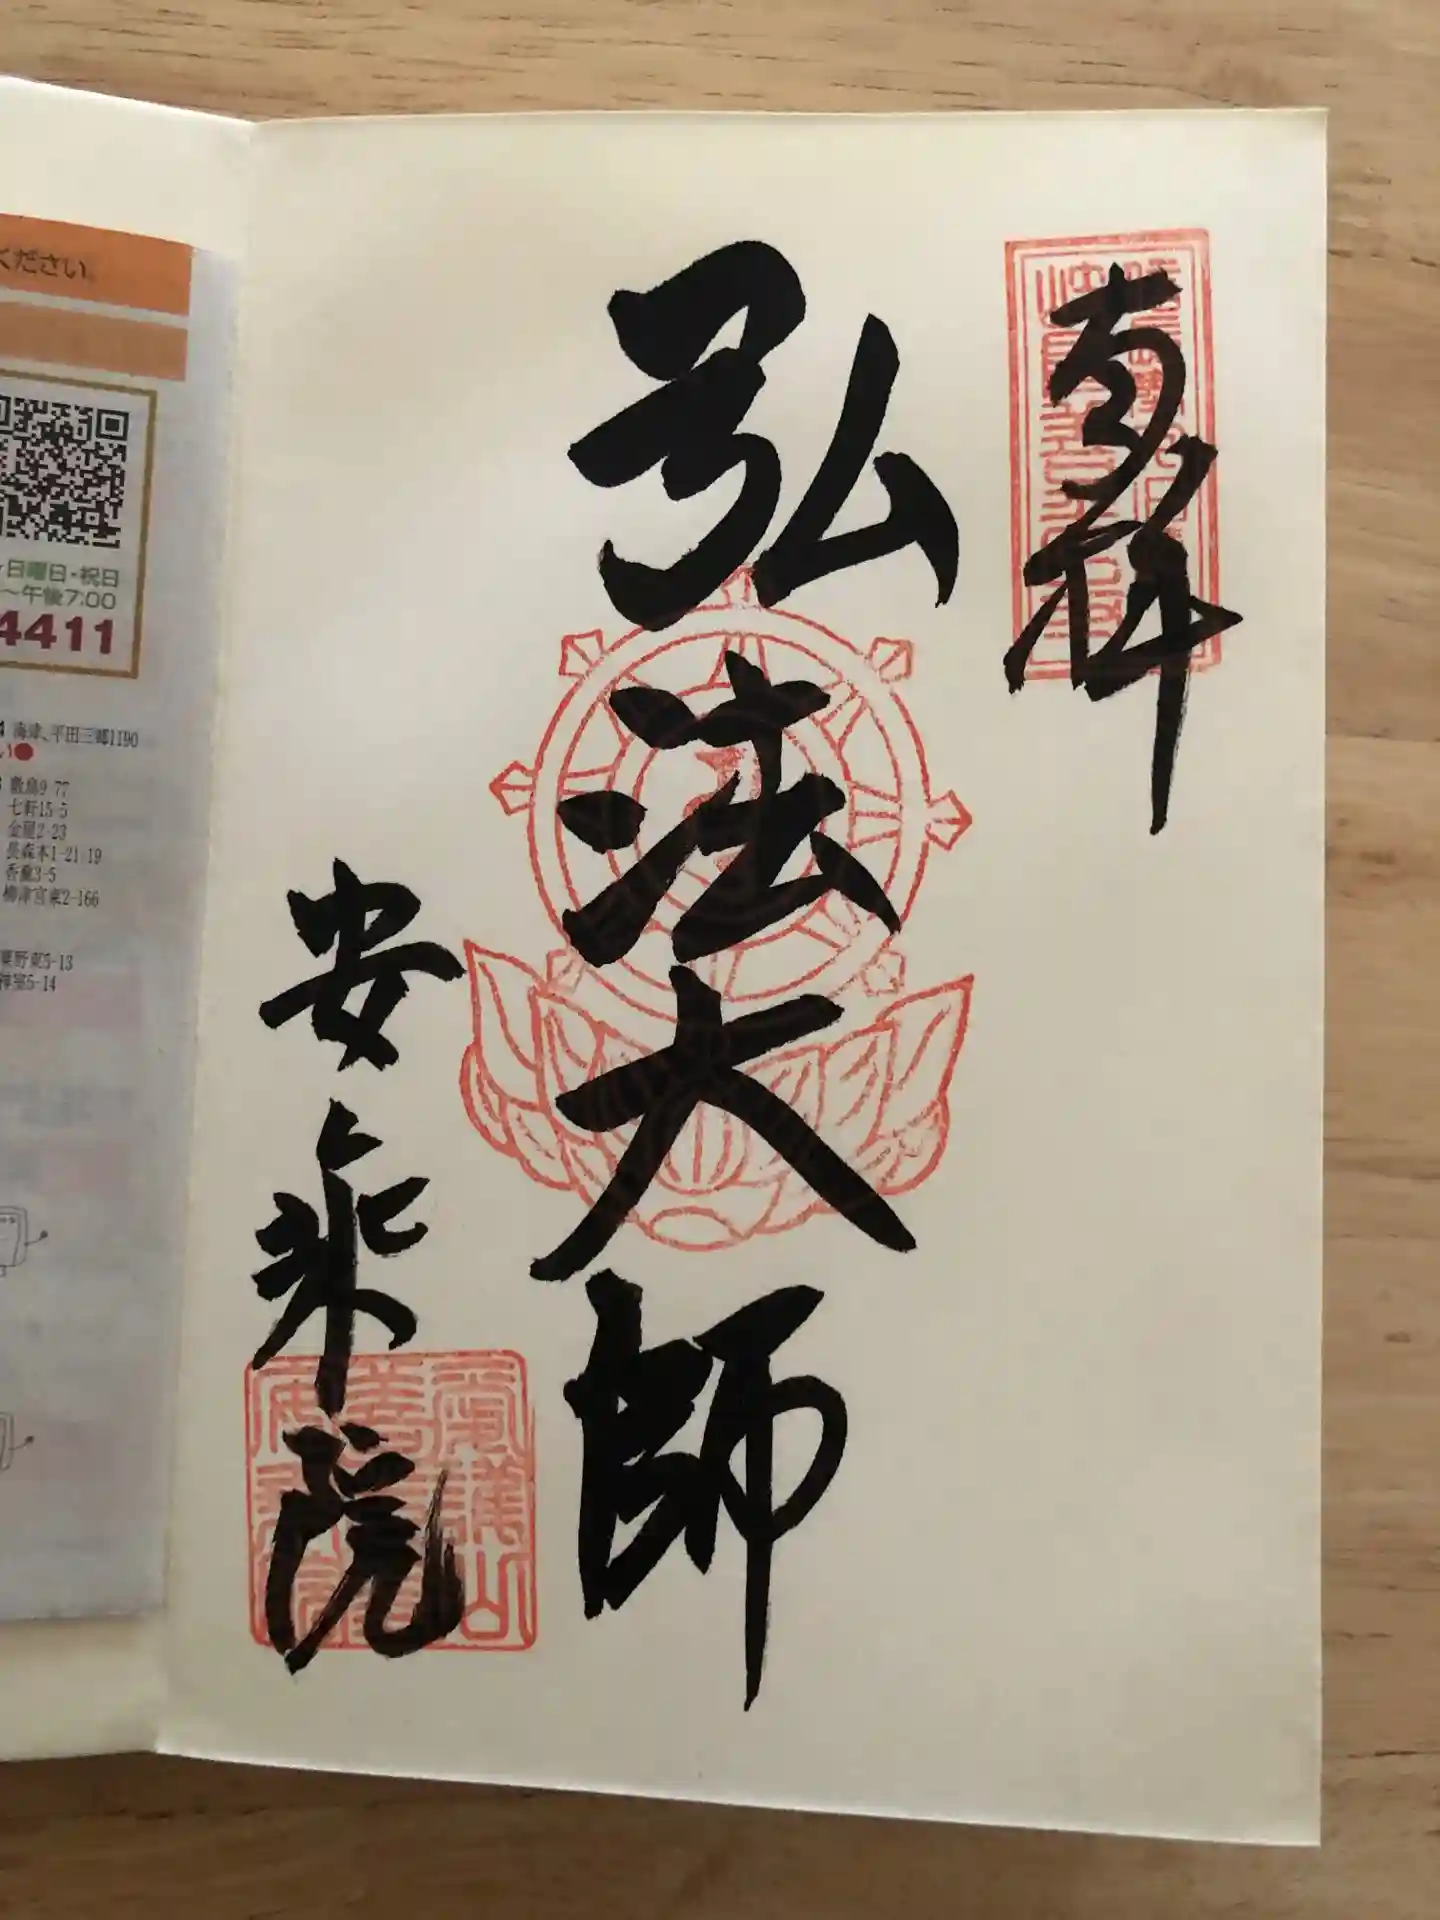 奉拝
弘法大師
安乘院
ください。
日曜日・祝日
～午後7:00
4411
海津、平田三郷1190
い●
敷島9-77
七軒15-5
金屋2-23
長森本1-21-19
香蘭3-5
柳津宮東2-166
粟野東5-13
神室5-14